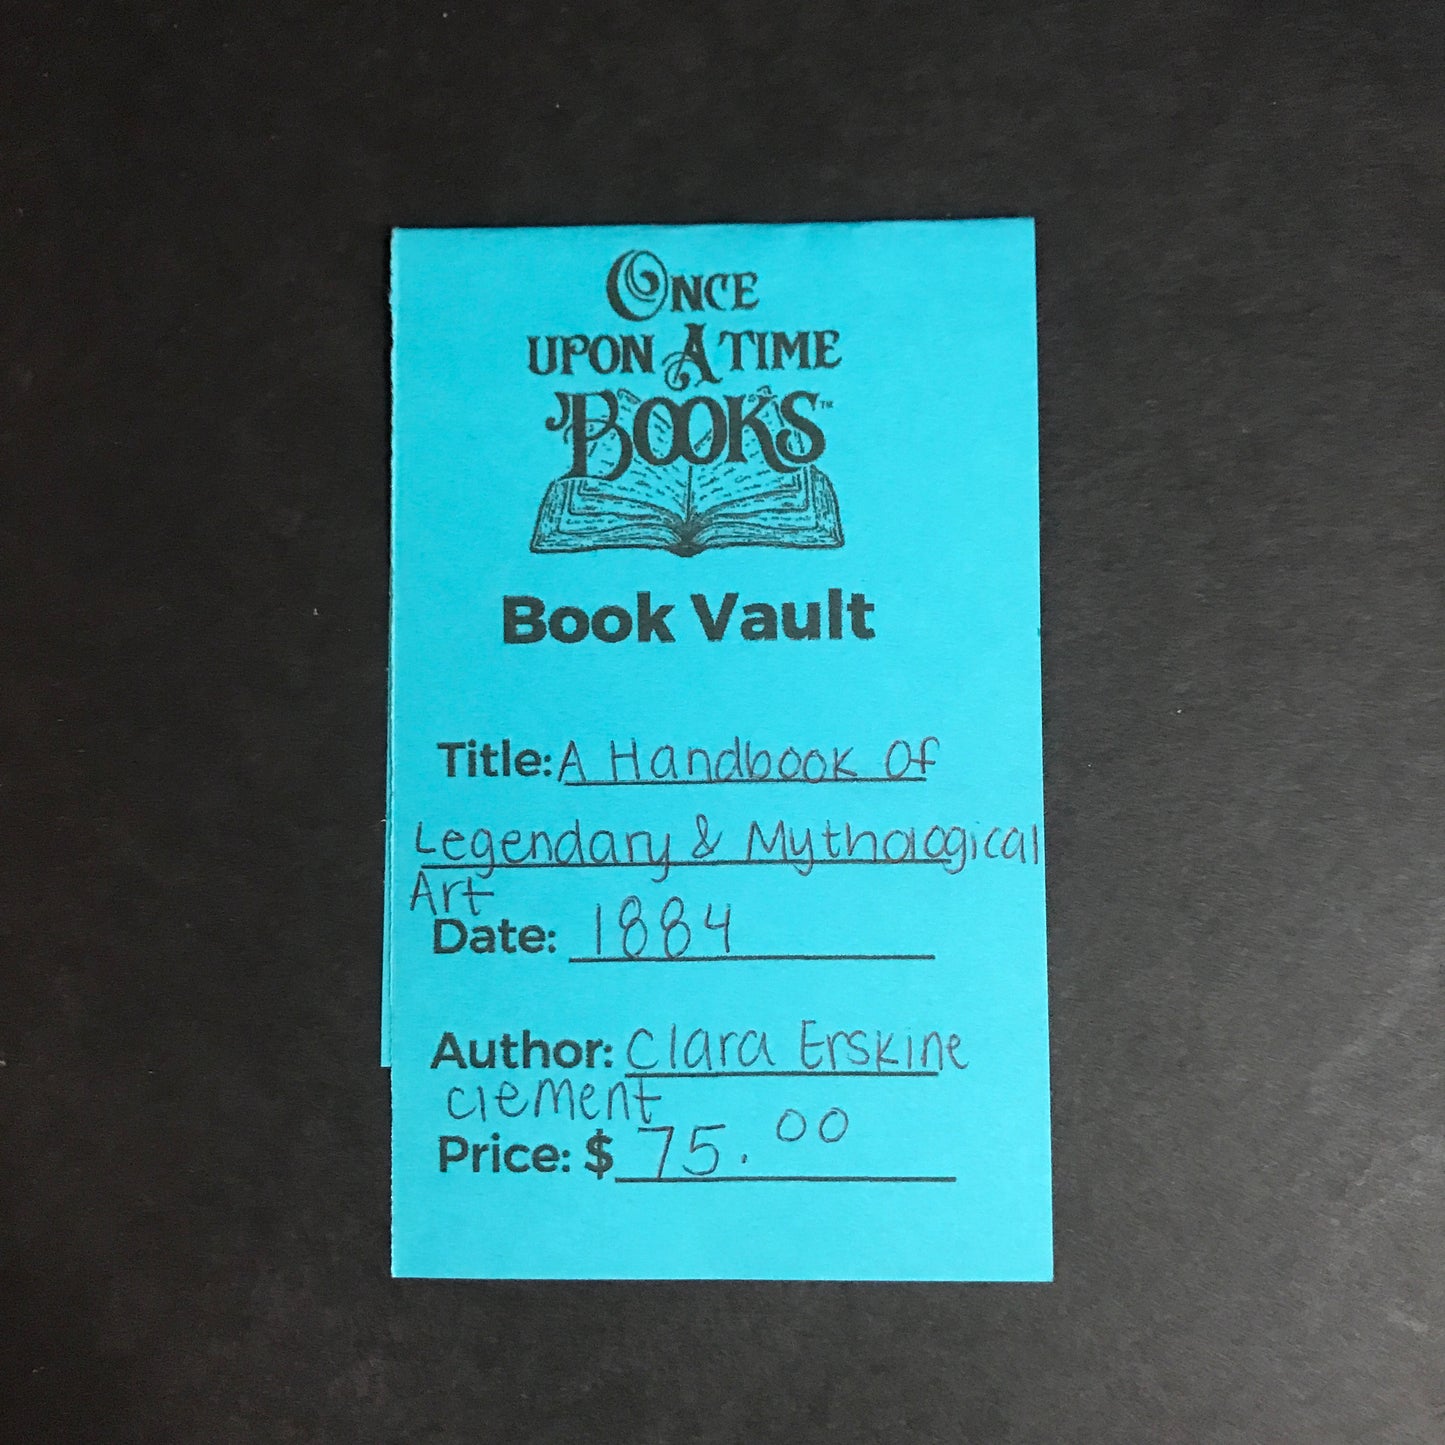 ONCE
UPON A TIME
BOOKS™
Book Vault
Title: A Handbook of
Legendary & Mythological
Art
Date: 1884
Author: Clara Erskine
Clement
Price: $ 75.00